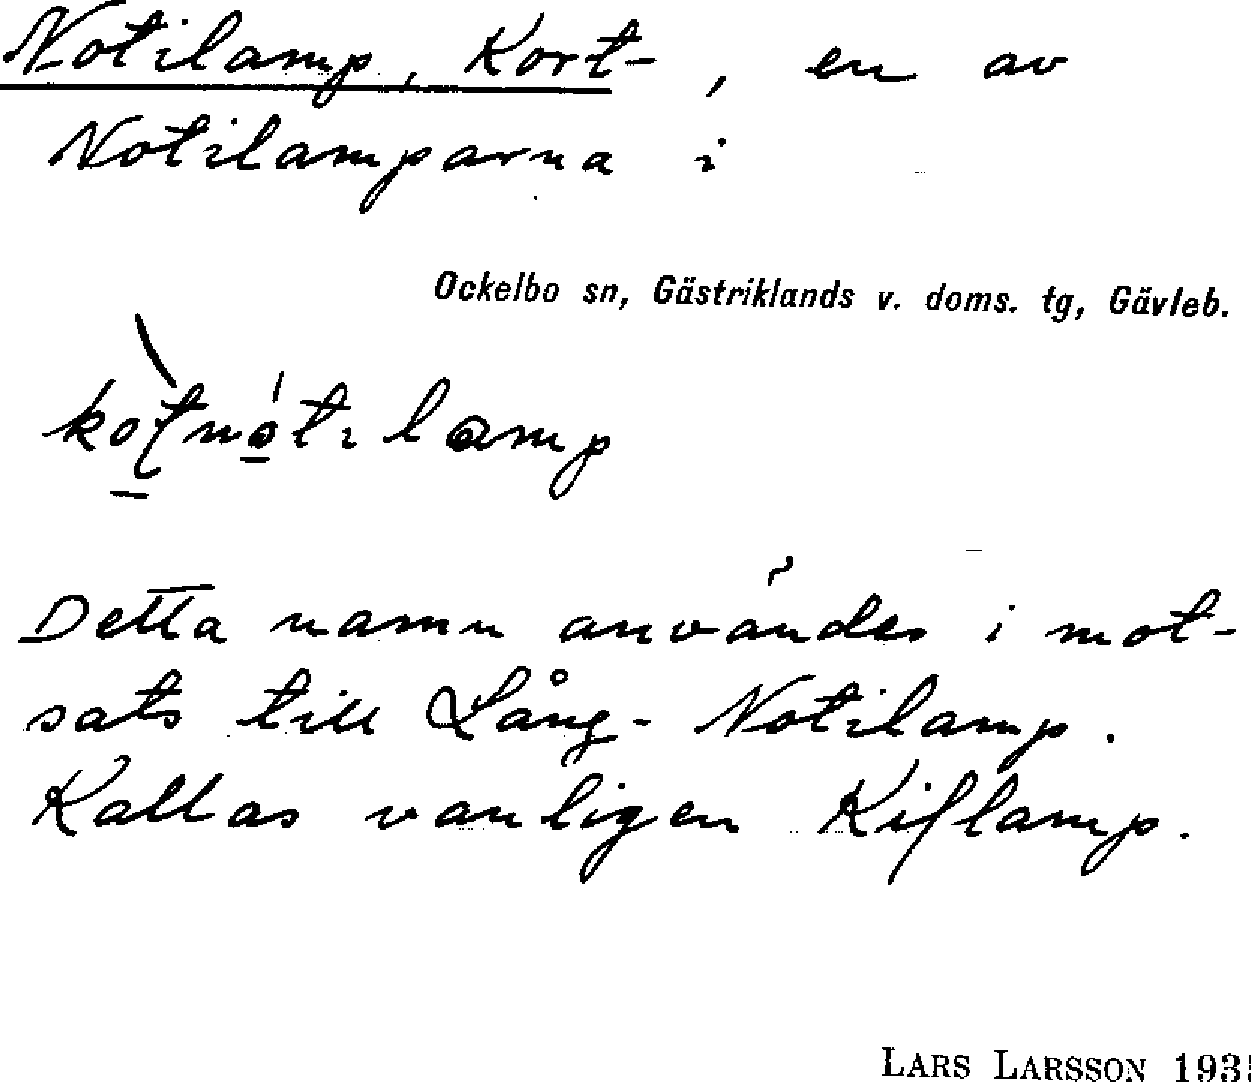 Notilamp, Kort-, en av
Notilamparna i
Ockelbo sn, Gästriklands v. doms. tg, Gävleb.
Detta namn användes i mot-
sats till Lång-Notilamp.
Kallas vanligen Kiflamp.
LARS LARSSON